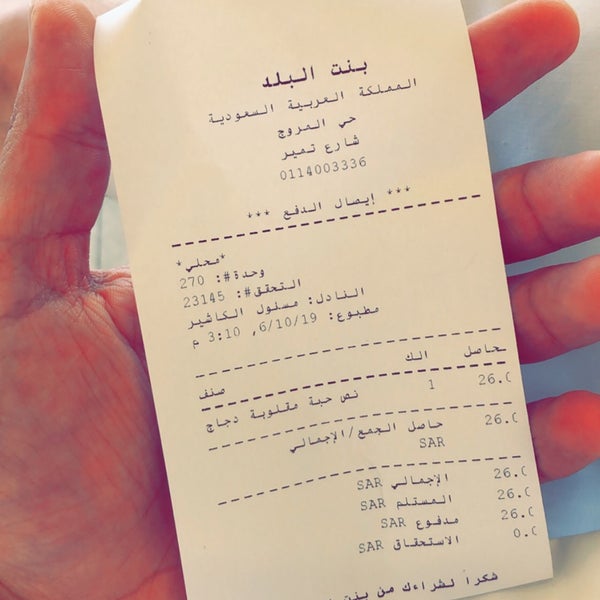 بنت البلد
المملكة العربية السعودية
حي المروج
شارع تمير
0114003336
*** إيصال الدفع ***
*محلي*
وحدة#: 270
التحقق#: 23145
النادل: مسئول الكاشير
مطبوع: 6/10/19, 3:10 م
صنف الك حاصل
نص حبة مقلوبة دجاج 1 26.0
حاصل الجمع/الإجمالي 26.0
SAR
الإجمالي SAR 26.0
المستلم SAR 26.0
مدفوع SAR 26.0
الاستحقاق SAR 0.0
شكراً لشراءك من بنت